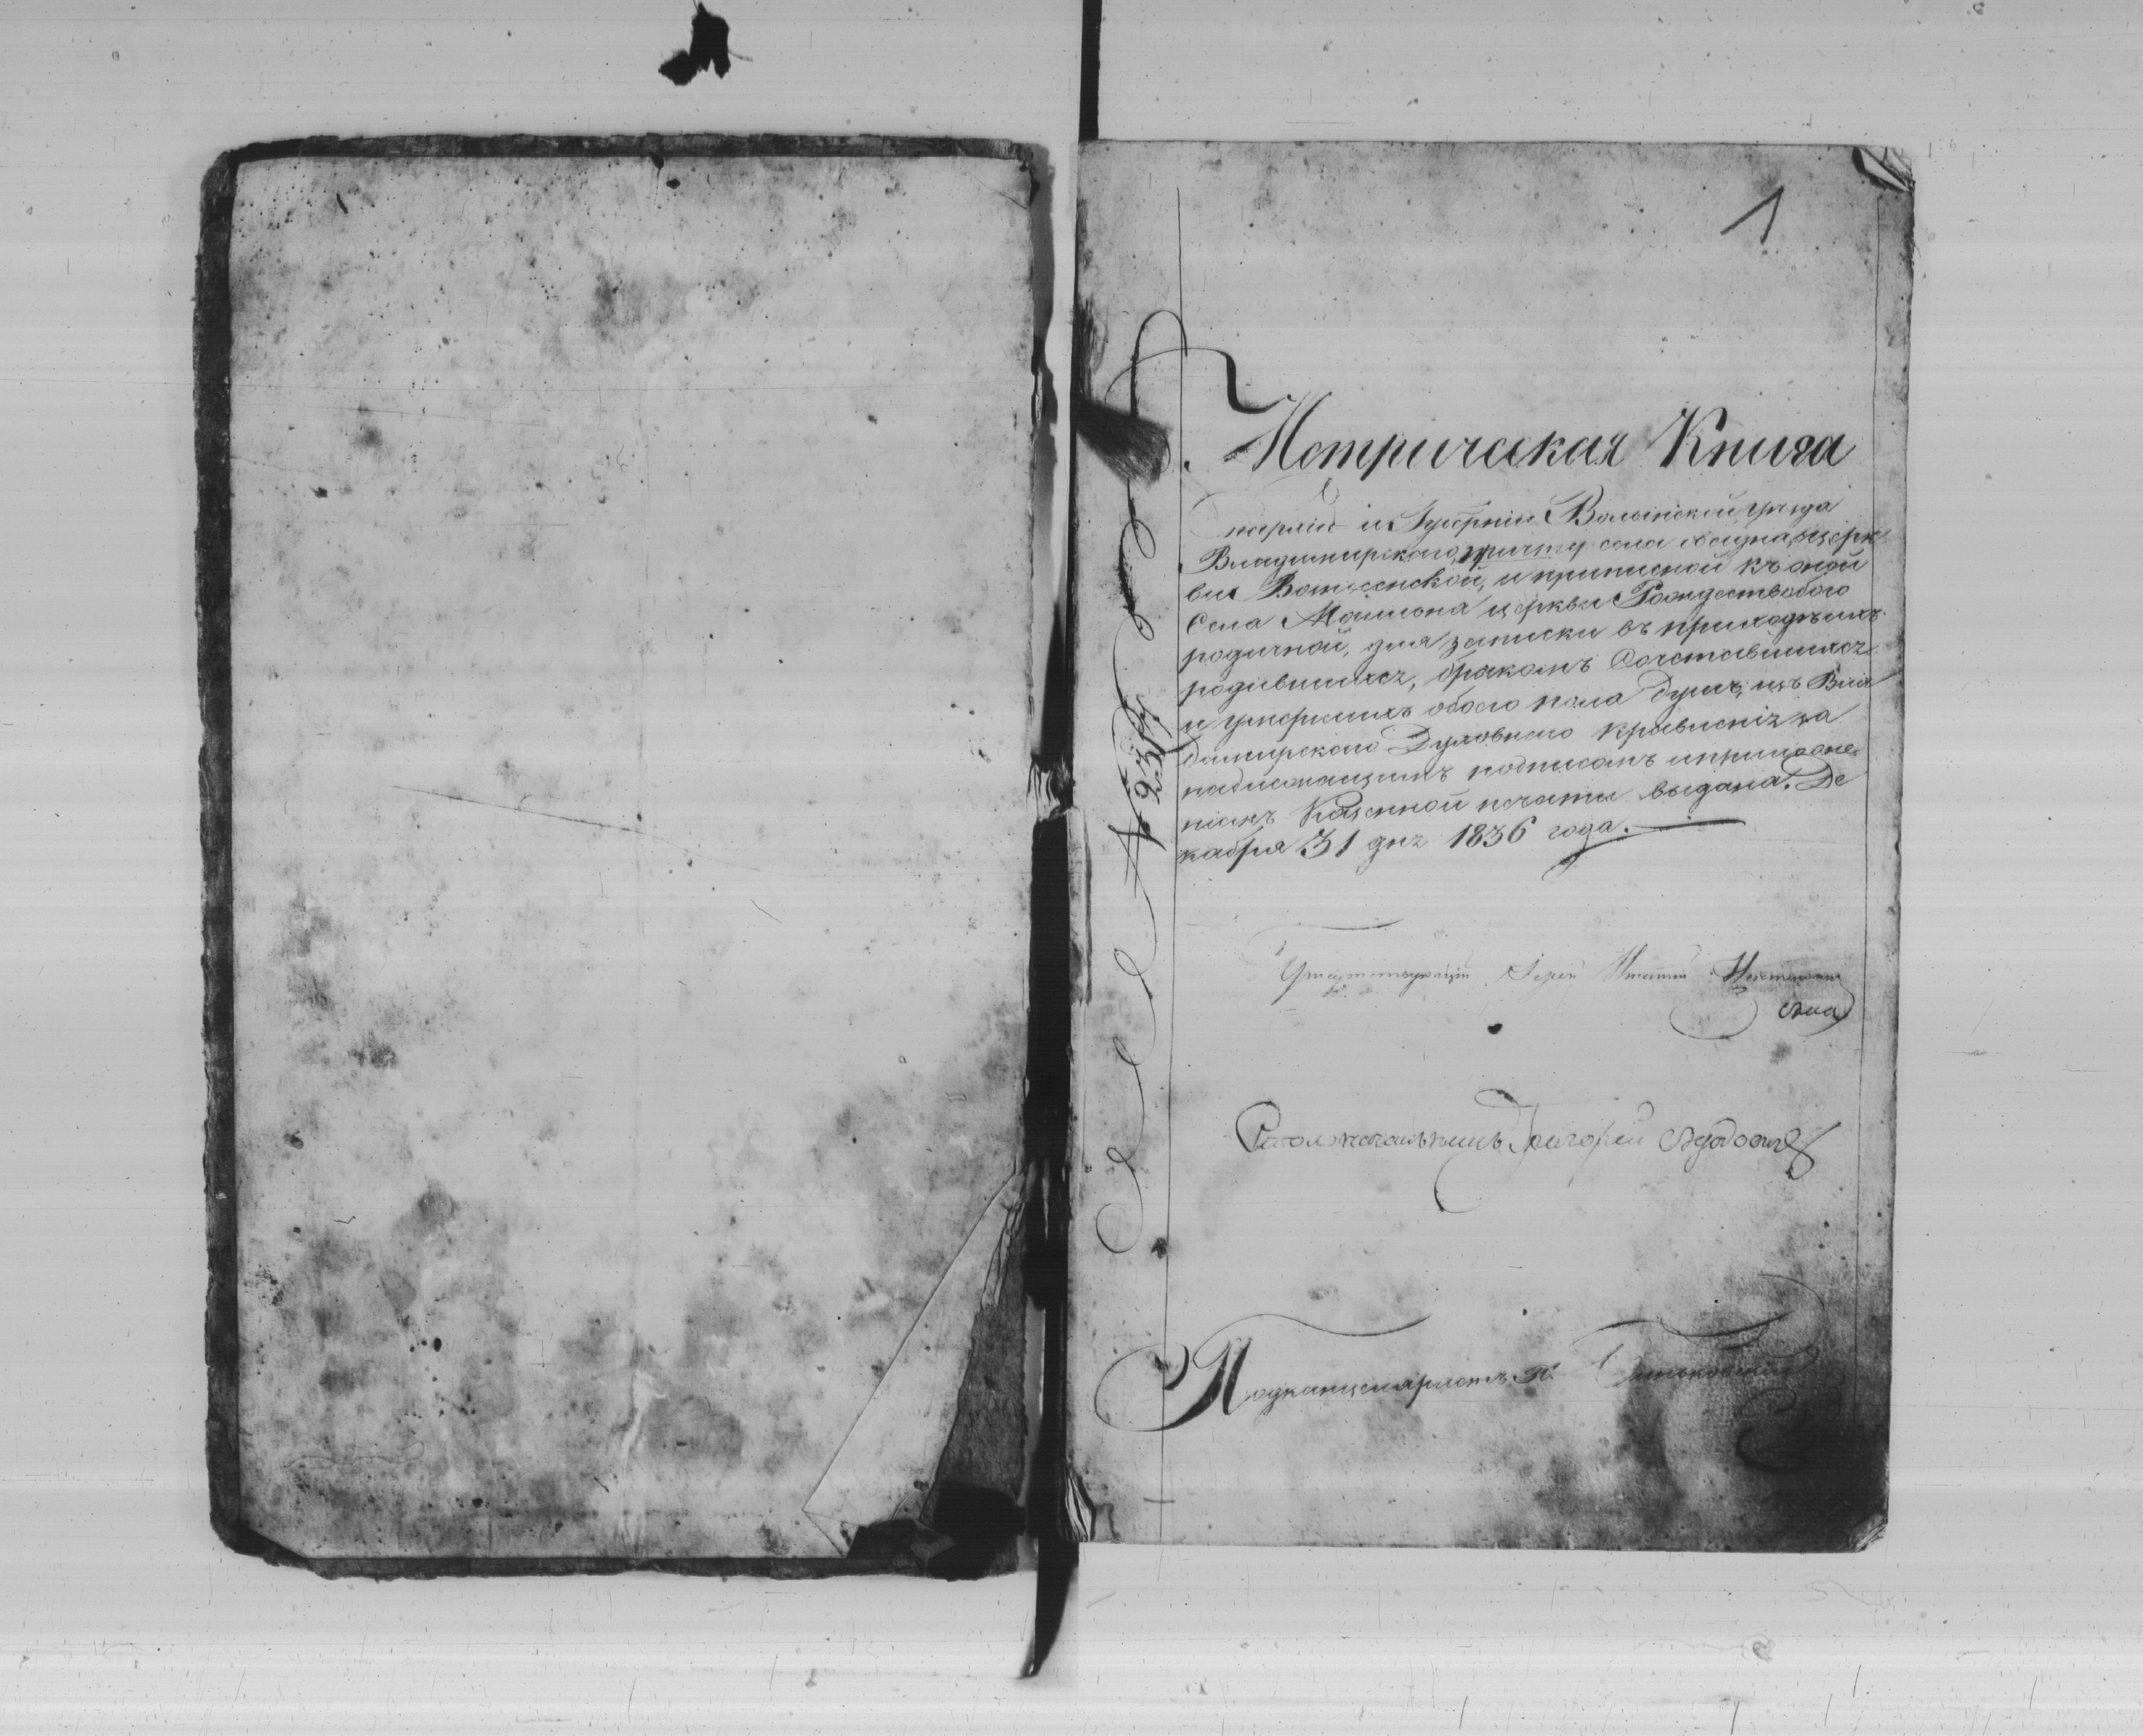 1
Метрическая Книга
Епархіи и Губерніи Волынской уѣзда
Владимирскаго, причту села Овадна, церк
ви Вознесенской, и приписной къ оной
Села церкви Рождествобого
родичной, для записки въ приходѣ ихъ
родившихся, бракомъ Сочетавшихся
и умершихъ обоего пола душъ, изъ Вла
димирскаго Духовнаго правленія за
надлежащимъ подписомъ и приложе
ніемъ Казенной печати выдана. Де
кабря 31 дня 1836 года.
№ 2357
Присутствующій Іерей
Столоначальникъ Григорій
Подканцеляристъ